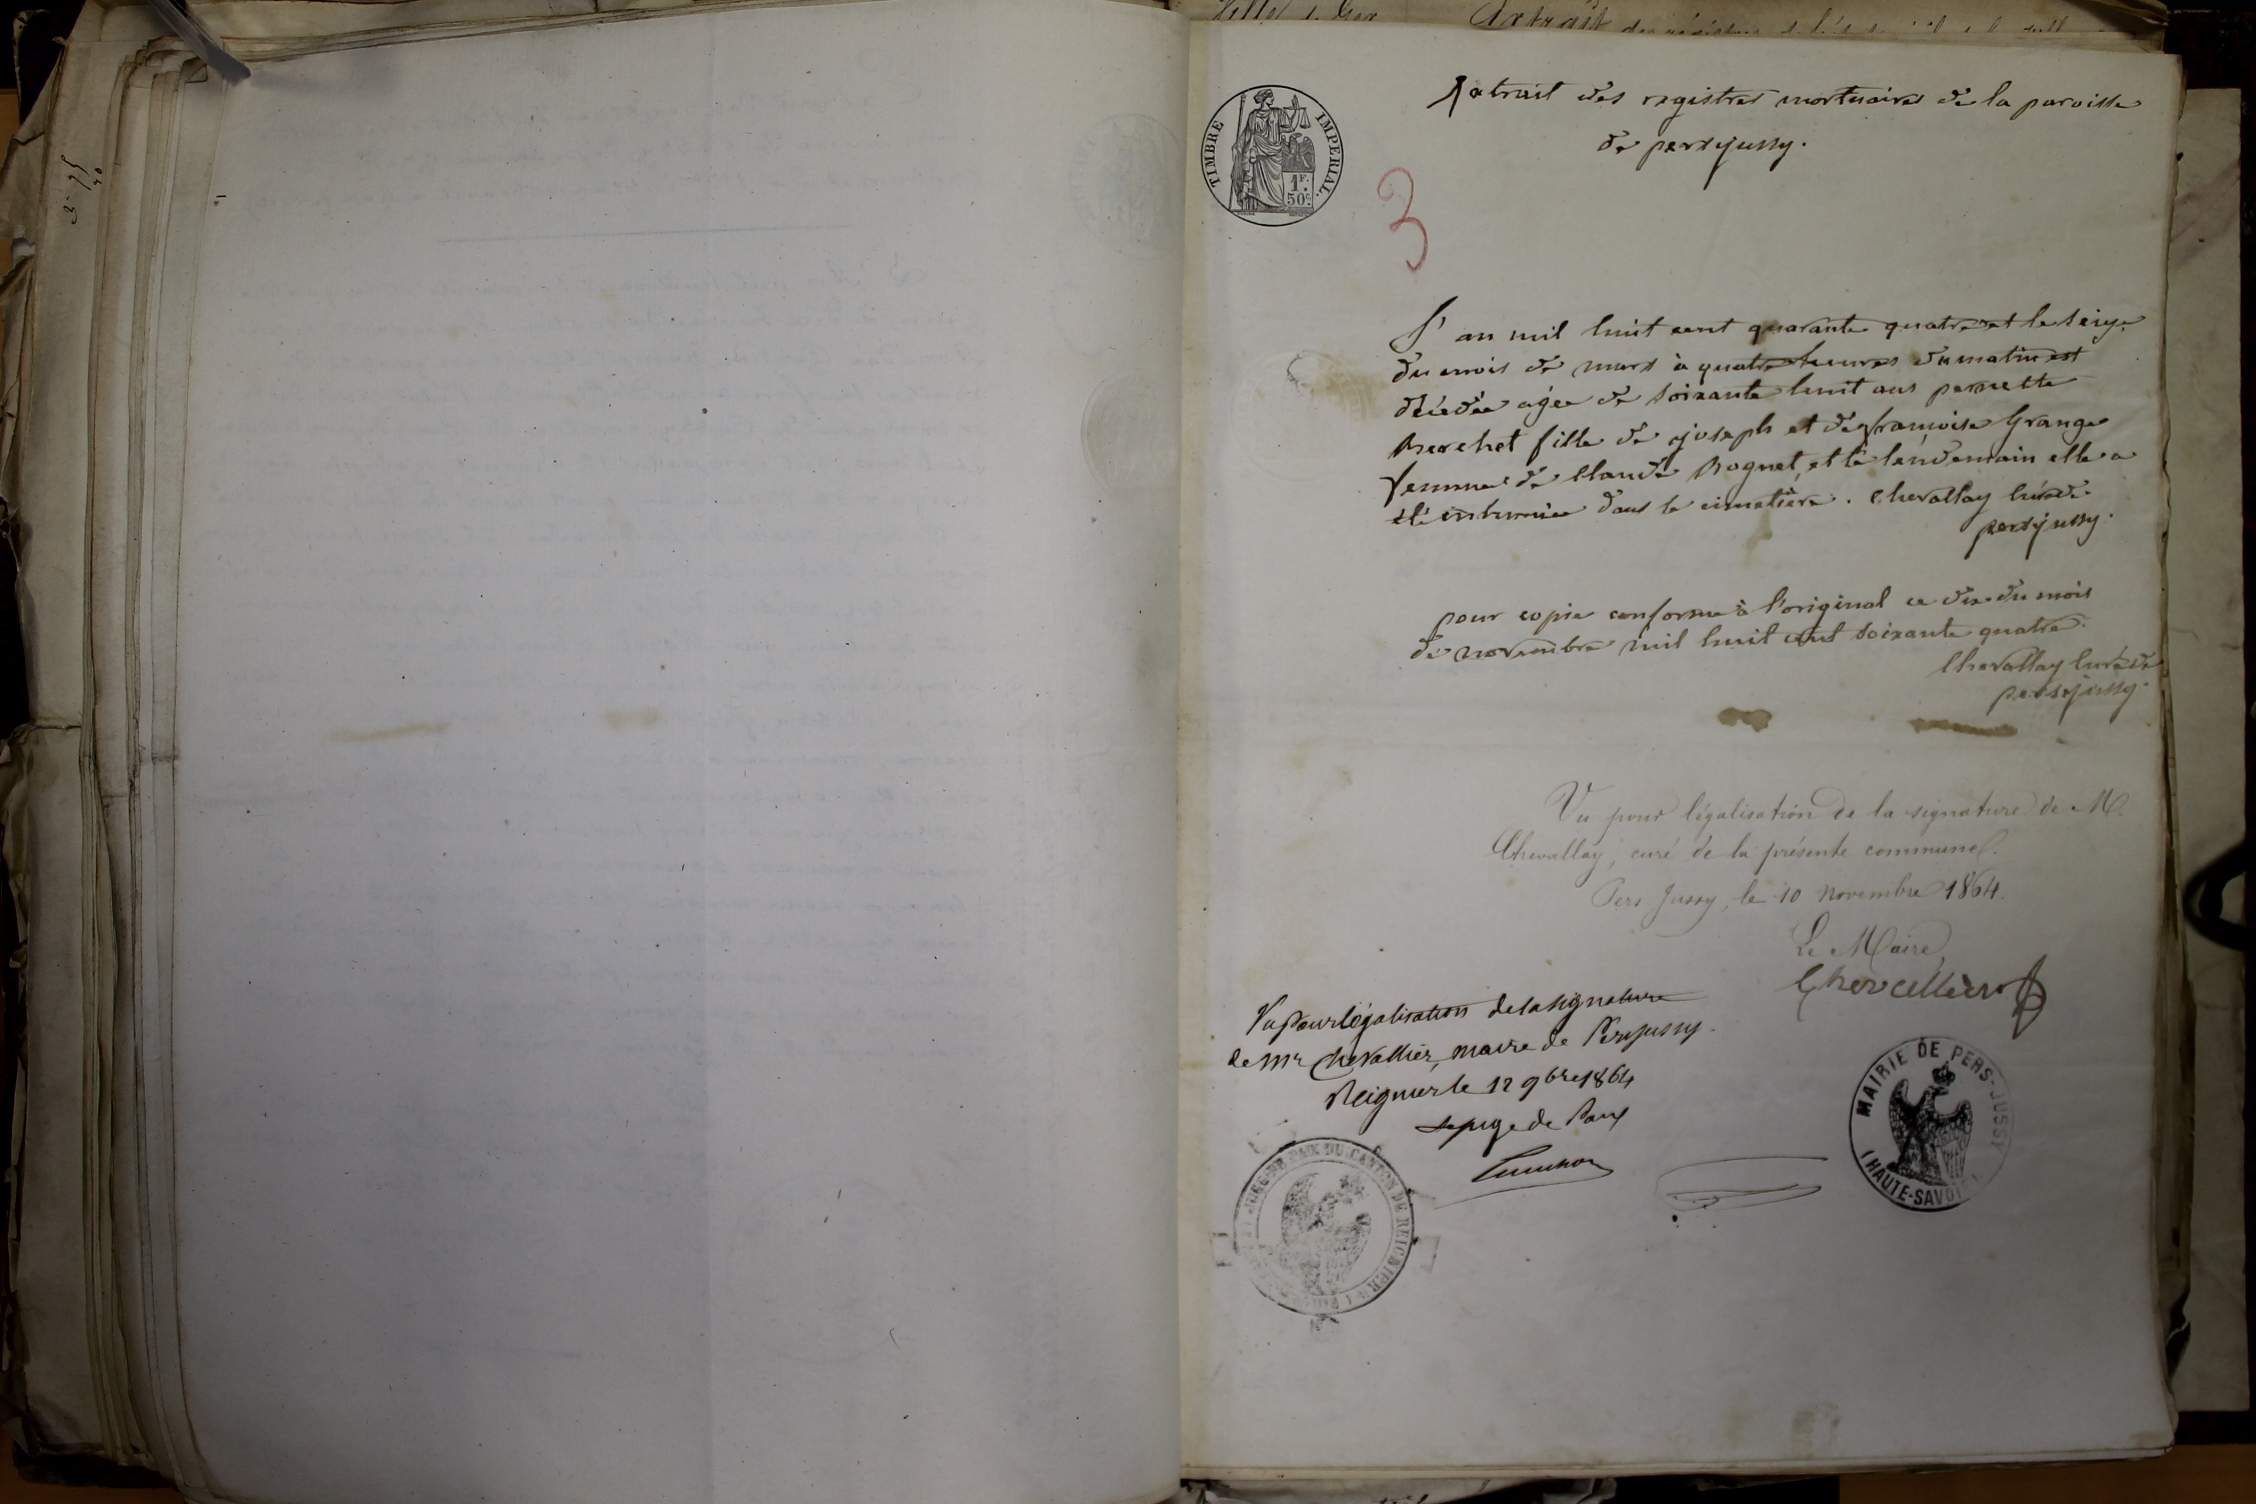 Extrait des registres mortuaires de la paroisse
de persjussy.
TIMBRE IMPERIAL.
1F.
50c
3
L'an mil huit cent quarante quatre et le seize
du mois de mars à quatre heures du matin est
décédée agée de soixante huit ans pernette
Berchet fille de joseph et de françoise Grange
femme de Claude Roguet, et le lendemain elle a
été inhumée dans le cimetière. Chevallay Curé de
persjussy.
pour copie conforme à l'original ce dix du mois
de novembre mil huit cent soixante quatre.
Chevallay Curé de
persjussy.
Vu pour légalisation de la signature de M.
Chevallay, curé de la présente commune.
Pers Jussy, le 10 Novembre 1864.
Le Maire,
Chevallier
Vu pour légalisation de la signature
de Mr Chevallier, maire de Persjussy.
Reignier le 12 9bre 1864
Le juge de Paix
MAIRIE DE PERS-JUSSY
(HAUTE-SAVOIE)
JUGE DE PAIX DU CANTON DE REIGNIER
Ville de Gex
Extrait des registres de l'état civil de la ville